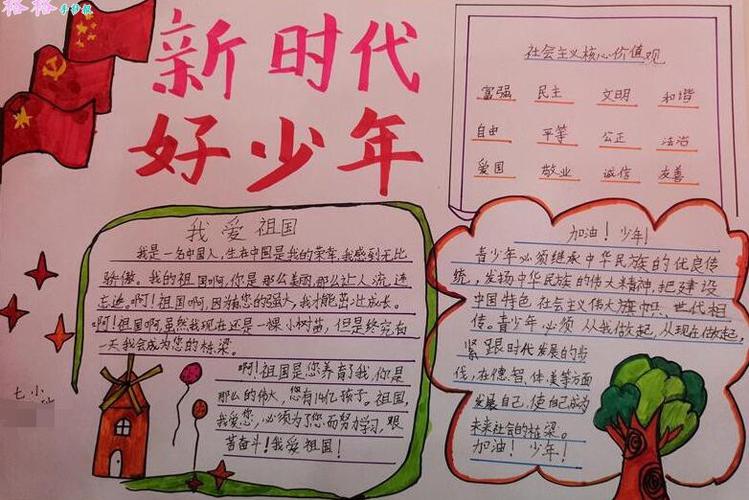 桧桧手抄报
新时代
好少年
社会主义核心价值观
富强 民主 文明 和谐
自由 平等 公正 法治
爱国 敬业 诚信 友善
我爱祖国
我是一名中国人,生在中国是我的荣幸,我感到无比
骄傲。我的祖国啊,你是那么美丽那么让人流连
忘返。啊!祖国啊,因为您的强大,我才能茁壮成长。
啊!祖国啊虽然我现在还是一棵小树苗,但是终究有
一天我会成为您的栋梁。
啊!祖国是您养育了我,你是
那么的伟大,您有14亿孩子。祖国,
我爱您,必须为了您而努力学习,艰
苦奋斗!我爱祖国!
加油!少年!
青少年必须继承中华民族的优良传
统,发扬中华民族的伟大精神,把建设
中国特色社会主义伟大旗帜、世代相
传。青少年必须从我做起,从现在做起,
紧跟时代发展的步
伐,在德智、体、美等方面
发展自己,使自己成为
未来社会的栋梁。
加油!少年!
七小